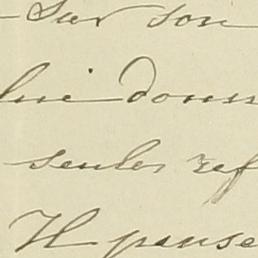 Sur son
lui donn
seules ref
Il pense